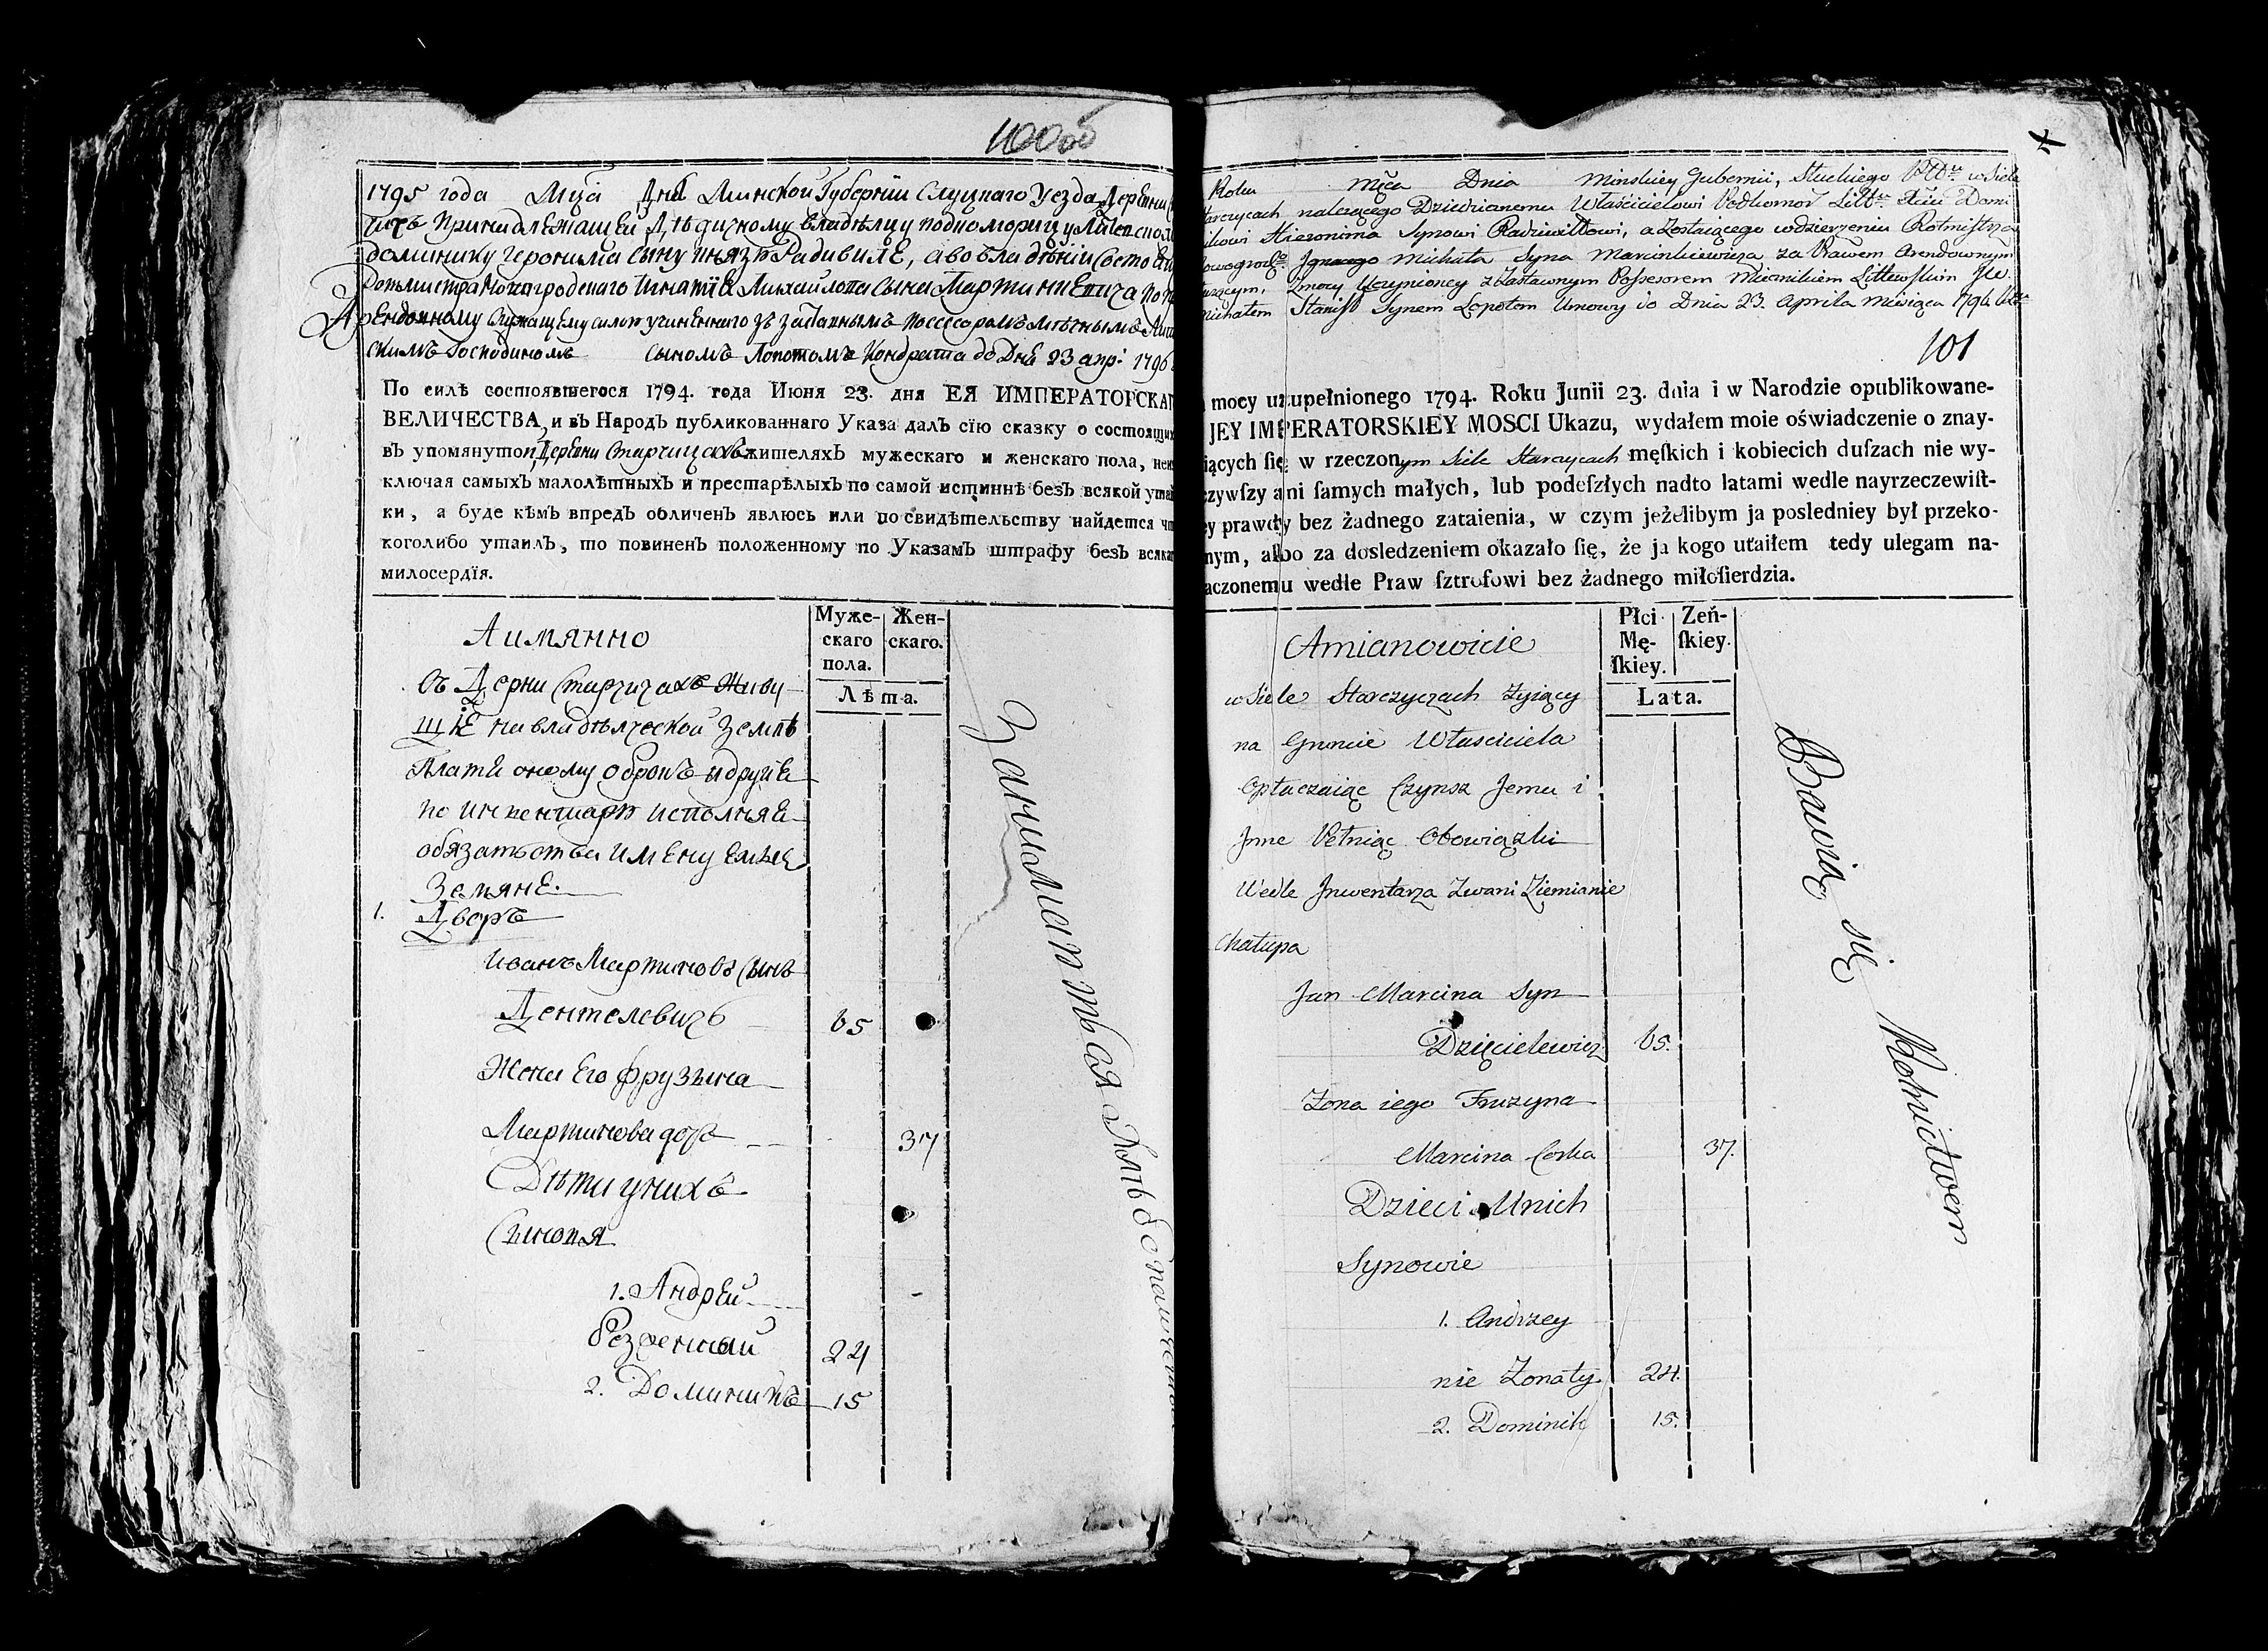 100об
1795 года Мца Дня Минской Губернїи Слуцкаго Уезда Деревни
принадлежащей Дѣдичному владѣлцу подкоморицу
доминику Геронима сыну князю Радивиле, а во владѣнїи
Ротмистра Игнатїя Михайлова сына Мартинкевича
Арендовному
скимъ Господиномъ сыномъ Лопотомъ Контракта до Дня 23 апр: 1796
По силѣ состоявшегося 1794. года Июня 23. дня ЕЯ ИМПЕРАТОРСКАГ
ВЕЛИЧЕСТВА, и въ Народъ публикованнаго Указа далъ сїю сказку о состоящих
въ упомянутой Деревни Старчицахъ жителяхъ мужескаго и женскаго пола, неис
ключая самыхъ малолѣтныхъ и престарѣлыхъ по самой истиннѣ безъ всякой утай
ки, а буде кѣмъ впредъ обличенъ явлюсь или по свидѣтельству найдется что
коголибо утаилъ, то повиненъ положенному по Указамъ штрафу безъ всяка
милосердїя.
Муже-
скаго
пола.
Жен-
скаго.
Лѣта.
А имянно
Въ Дерни Старчичахъ Живу-
щїе на владѣлческой Землѣ
Платя оному оброкъ и другїя
по инвентару исполняя
обязательства имену емые
Земяне.
1. Дворъ
Иванъ Мартиновъ Сынъ
Дентелевичъ 65
Жена Его Фрузына
Мартинова дочь 37
Дѣти у нихъ
Сыновя
1. Андрей
безженный 24
2. Доминикъ 15
Занимаютъся Хлѣбопашеством
Roku Mca Dnia Minskiey Gubernii, Sluckiego Pttu w Siele
Starczycach należącego Dziedzicznemu Właścicielowi Podkomor Litt Xciu Domi
nikowi Hieronima Synowi Radziwiłłowi, a Zostaiącego w dzierżeniu Rotmistrza
Nowogrodz Ignacego Michała Syna Marcinkiewicza za Prawem Arendownym
Zmocy Uczynioney z Zastawnym Possesorem Miecznikiem Littewskim
Michałem Stanisł Synem Łopotem Umowy do Dnia 23. Aprila miesiąca 1796.
101
mocy uzupełnionego 1794. Roku Junii 23. dnia i w Narodzie opublikowane-
JEY IMPERATORSKIEY MOSCI Ukazu, wydałem moie oświadczenie o znay-
iących ſię w rzeczonym Siele Starczycach męſkich i kobiecich duſzach nie wy-
czywſzy ani ſamych małych, lub podeſzłych nadto latami wedle nayrzeczewiſt-
ey prawdy bez żadnego zataienia, w czym jeżelibym ja posledniey był przeko-
nym, albo za dosledzeniem okazało ſię, że ja kogo utaiłem tedy ulegam na-
aczonemu wedle Praw ſztrofowi bez żadnego miłoſierdzia.
Płci
Mę-
ſkiey.
Zeń-
ſkiey.
Lata.
Amianowicie
w Siele Starczyczach Zyiący
na Gruncie Właściciela
Opłaczaiąc Czynsz Jemu i
Jnne Pełniąc Obowiązki
Wedle Jnwentarza Zwani Ziemianie
Chałupa
Jan Marcina Syn
Dzięcielewicz 65.
Zona iego Fruzyna
Marcina Corka 37.
Dzieci Unich
Synowie
1. Andrzey
nie Zonaty 24.
2. Dominik 15.
Bawią się Rolnictwem